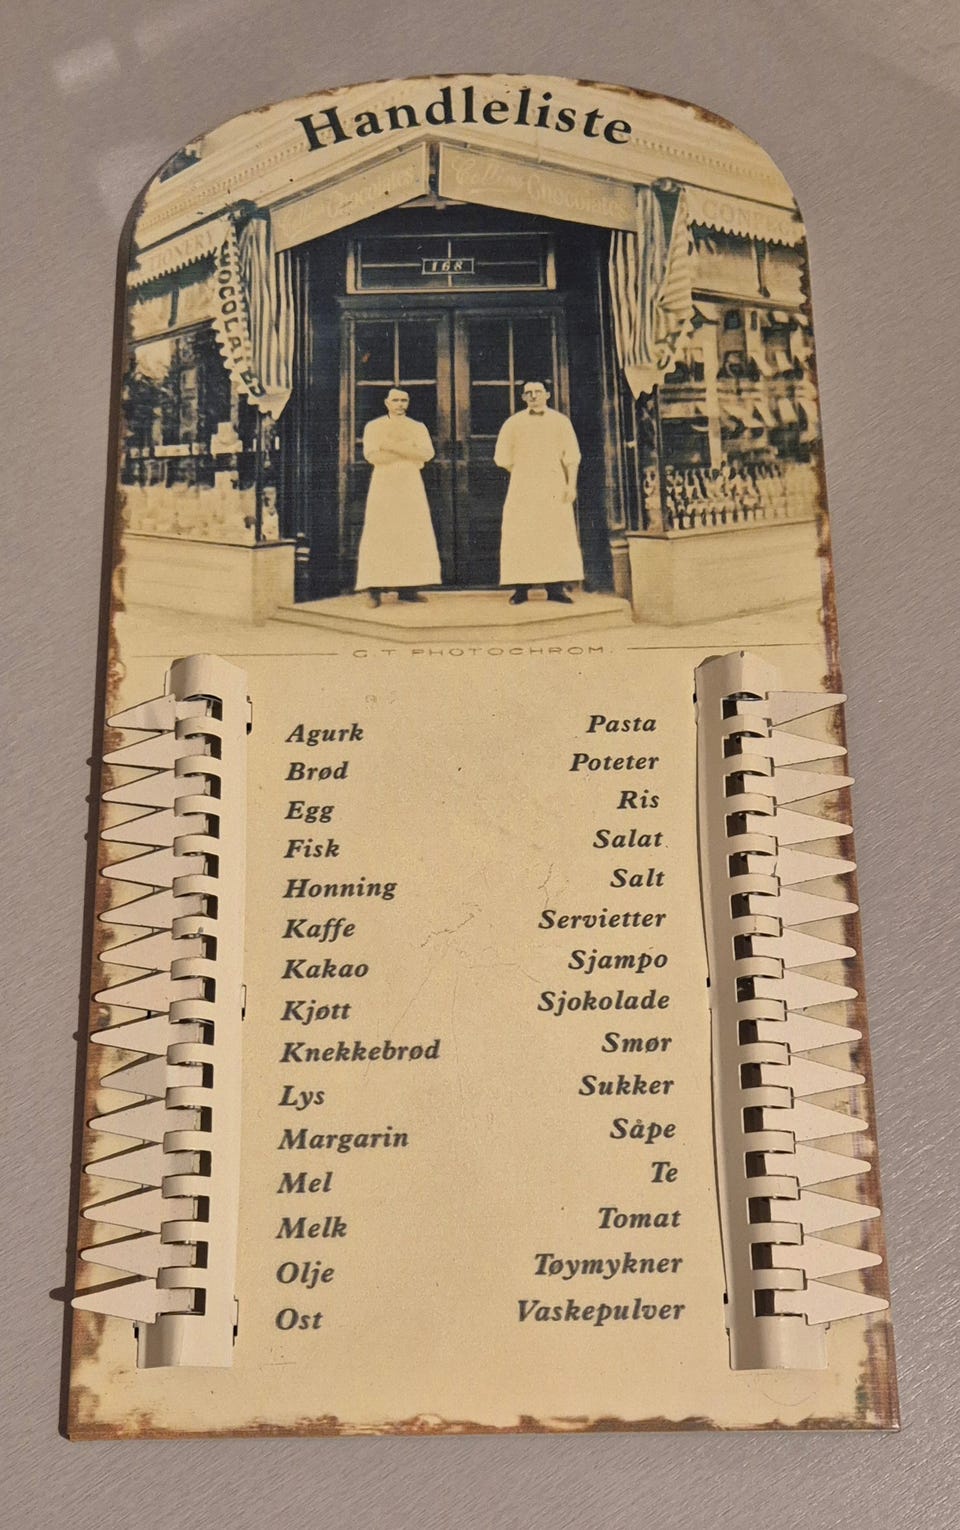 Handleliste
Chocolates
Chocolates
CONFEC
TIONERY
168
C.T PHOTOCHROM.
Agurk
Brød
Egg
Fisk
Honning
Kaffe
Kakao
Kjøtt
Knekkebrød
Lys
Margarin
Mel
Melk
Olje
Ost
Pasta
Poteter
Ris
Salat
Salt
Servietter
Sjampo
Sjokolade
Smør
Sukker
Såpe
Te
Tomat
Tøymykner
Vaskepulver